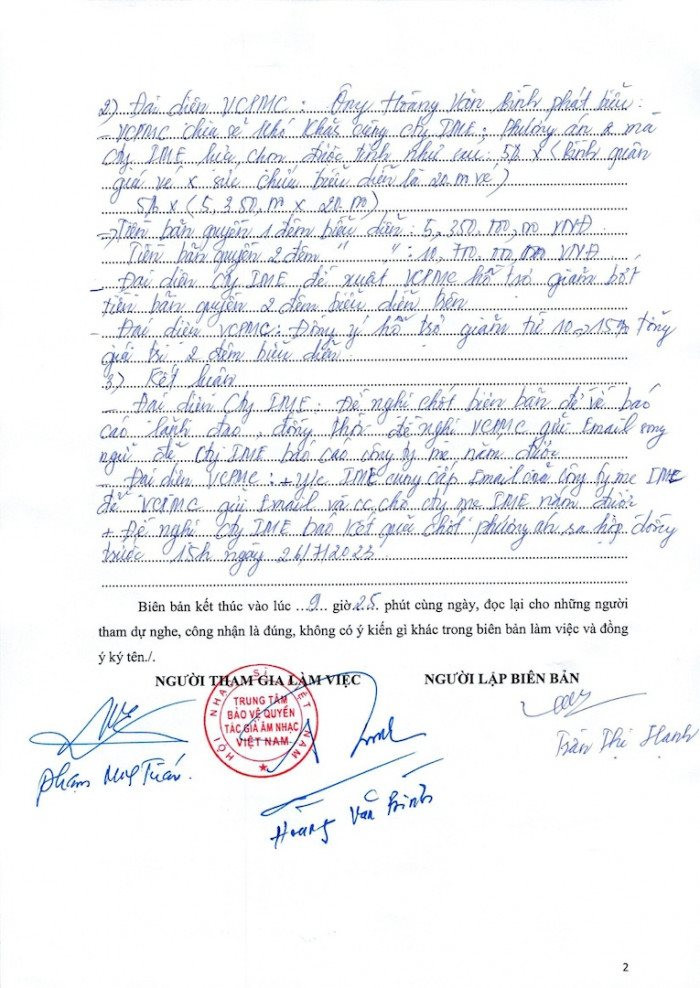 2) Đại diện VCPMC: Ông Hoàng Văn Bình phát biểu:
- VCPMC chia sẻ khó khăn cùng Cty IME; Phương án 2 mà
Cty IME lựa chọn được tính như sau: 5% x (Bình quân
giá vé x sức chứa biểu diễn là 20.m vé)
5% x (5,350,m x 20.m)
→ Tiền bản quyền 1 đêm biểu diễn: 5,350.000,00 VNĐ
Tiền bản quyền 2 đêm " ": 10,700.000,000 VNĐ
- Đại diện Cty IME đề xuất VCPMC hỗ trợ giảm bớt
tiền bản quyền 2 đêm biểu diễn
- Đại diện VCPMC: Đồng ý hỗ trợ giảm từ 10→15% tổng
giá trị 2 đêm biểu diễn.
3) Kết luận
- Đại diện Cty IME: Đề nghị chốt biên bản để về báo
cáo lãnh đạo, đồng thời đề nghị VCPMC gửi Email song
ngữ để Cty IME báo cáo công ty mẹ nắm được
- Đại diện VCPMC: + y/c IME cung cấp Email của công ty mẹ IME
để VCPMC gửi Email và cc cho cty mẹ IME nắm được
+ Đề nghị Cty IME báo kết quả chốt phương án hợp đồng
trước 15h ngày 26/7/2023
Biên bản kết thúc vào lúc ...9... giờ 25 phút cùng ngày, đọc lại cho những người
tham dự nghe, công nhận là đúng, không có ý kiến gì khác trong biên bản làm việc và đồng
ý ký tên./.
NGƯỜI THAM GIA LÀM VIỆC NGƯỜI LẬP BIÊN BẢN
HỘI NHẠC SĨ VIỆT NAM
TRUNG TÂM
BẢO VỆ QUYỀN
TÁC GIẢ ÂM NHẠC
VIỆT NAM
Trần Thị Hạnh
Phạm Tuấn
Hoàng Văn Bình
2